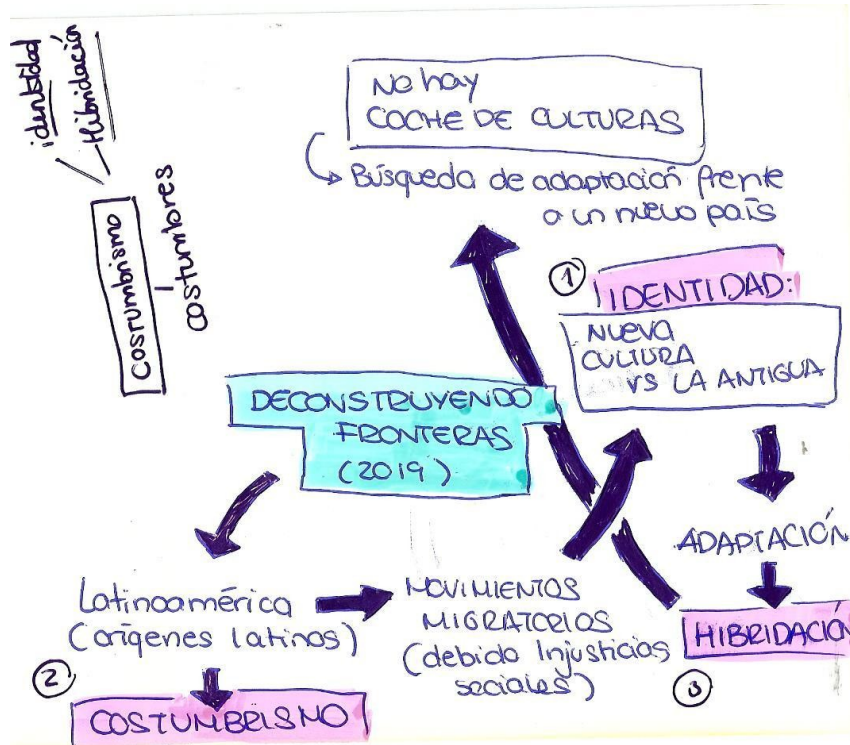 identidad
Hibridación
Costumbrismo
costumbres
No hay
COCHE DE CULTURAS
Búsqueda de adaptación frente
a un nuevo país
1
IDENTIDAD:
NUEVA
CULTURA
VS LA ANTIGUA
DECONSTRUYENDO
FRONTERAS
(2019)
ADAPTACIÓN
HIBRIDACIÓN
3
Latinoamérica
(orígenes latinos)
MOVIMIENTOS
MIGRATORIOS
(debido Injusticias
sociales)
2
COSTUMBRISMO